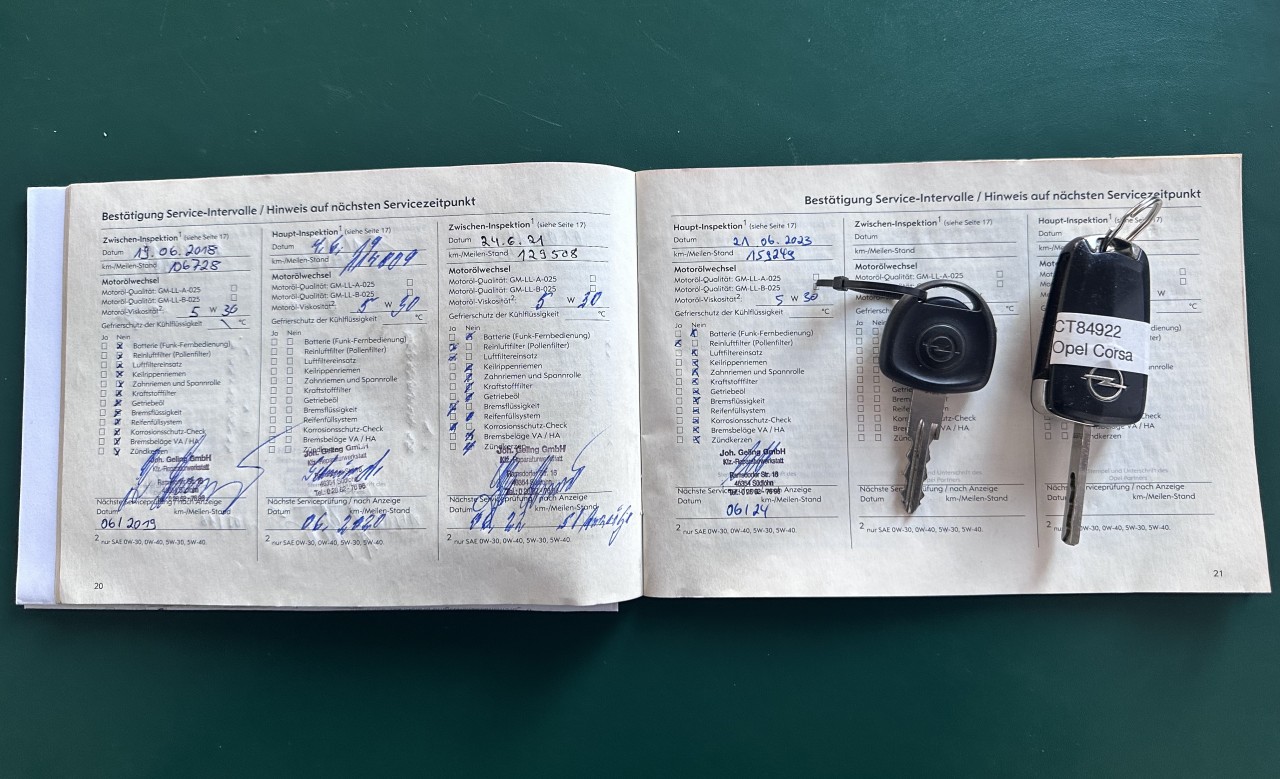 Bestätigung Service-Intervalle / Hinweis auf nächsten Servicezeitpunkt
Zwischen-Inspektion¹ (siehe Seite 17)
Datum 19.06.2018
km-/Meilen-Stand 106728
Motorölwechsel
Motoröl-Qualität: GM-LL-A-025
Motoröl-Qualität: GM-LL-B-025
Motoröl-Viskosität²: 5 W 30
Gefrierschutz der Kühlflüssigkeit °C
Ja Nein
Batterie (Funk-Fernbedienung)
Reinluftfilter (Pollenfilter)
Luftfiltereinsatz
Keilrippenriemen
Zahnriemen und Spannrolle
Kraftstofffilter
Getriebeöl
Bremsflüssigkeit
Reifenfüllsystem
Korrosionsschutz-Check
Bremsbeläge VA / HA
Zündkerzen
Joh. Geling GmbH
Kfz.-Reparaturwerkstatt
Nächste Serviceprüfung / nach Anzeige
Datum km-/Meilen-Stand
06/2019
² nur SAE 0W-30, 0W-40, 5W-30, 5W-40.
20
Haupt-Inspektion¹ (siehe Seite 17)
Datum 4.6.19
km-/Meilen-Stand
Motorölwechsel
Motoröl-Qualität: GM-LL-A-025
Motoröl-Qualität: GM-LL-B-025
Motoröl-Viskosität²: 5 W 30
Gefrierschutz der Kühlflüssigkeit °C
Ja Nein
Batterie (Funk-Fernbedienung)
Reinluftfilter (Pollenfilter)
Luftfiltereinsatz
Keilrippenriemen
Zahnriemen und Spannrolle
Kraftstofffilter
Getriebeöl
Bremsflüssigkeit
Reifenfüllsystem
Korrosionsschutz-Check
Bremsbeläge VA / HA
Zündkerzen
Joh. Geling GmbH
46354 Südlohn
Nächste Serviceprüfung / nach Anzeige
Datum km-/Meilen-Stand
06.2020
² nur SAE 0W-30, 0W-40, 5W-30, 5W-40.
Zwischen-Inspektion¹ (siehe Seite 17)
Datum 24.6.21
km-/Meilen-Stand 129508
Motorölwechsel
Motoröl-Qualität: GM-LL-A-025
Motoröl-Qualität: GM-LL-B-025
Motoröl-Viskosität²: 5 W 30
Gefrierschutz der Kühlflüssigkeit °C
Ja Nein
Batterie (Funk-Fernbedienung)
Reinluftfilter (Pollenfilter)
Luftfiltereinsatz
Keilrippenriemen
Zahnriemen und Spannrolle
Kraftstofffilter
Getriebeöl
Bremsflüssigkeit
Reifenfüllsystem
Korrosionsschutz-Check
Bremsbeläge VA / HA
Zündkerzen
Joh. Geling GmbH
Kfz.-Reparaturwerkstatt
Nächste Serviceprüfung / nach Anzeige
Datum km-/Meilen-Stand
² nur SAE 0W-30, 0W-40, 5W-30, 5W-40.
Bestätigung Service-Intervalle / Hinweis auf nächsten Servicezeitpunkt
Haupt-Inspektion¹ (siehe Seite 17)
Datum 21.06.2023
km-/Meilen-Stand 159249
Motorölwechsel
Motoröl-Qualität: GM-LL-A-025
Motoröl-Qualität: GM-LL-B-025
Motoröl-Viskosität²: 5 W 30
Gefrierschutz der Kühlflüssigkeit °C
Ja Nein
Batterie (Funk-Fernbedienung)
Reinluftfilter (Pollenfilter)
Luftfiltereinsatz
Keilrippenriemen
Zahnriemen und Spannrolle
Kraftstofffilter
Getriebeöl
Bremsflüssigkeit
Reifenfüllsystem
Korrosionsschutz-Check
Bremsbeläge VA / HA
Zündkerzen
Joh. Geling GmbH
Kfz.-Reparaturwerkstatt
Ramsdorfer Str. 18
46354 Südlohn
Datum km-/Meilen-Stand
06/24
² nur SAE 0W-30, 0W-40, 5W-30, 5W-40.
Zwischen-Inspektion¹ (siehe Seite 17)
Datum
km-/Meilen-Stand
Nächste Serviceprüfung / nach Anzeige
Datum km-/Meilen-Stand
² nur SAE 0W-30, 0W-40, 5W-30, 5W-40.
Haupt-Inspektion¹
CT84922
Opel Corsa
Nächste Serviceprüfung / nach Anzeige
Datum km-/Meilen-Stand
21